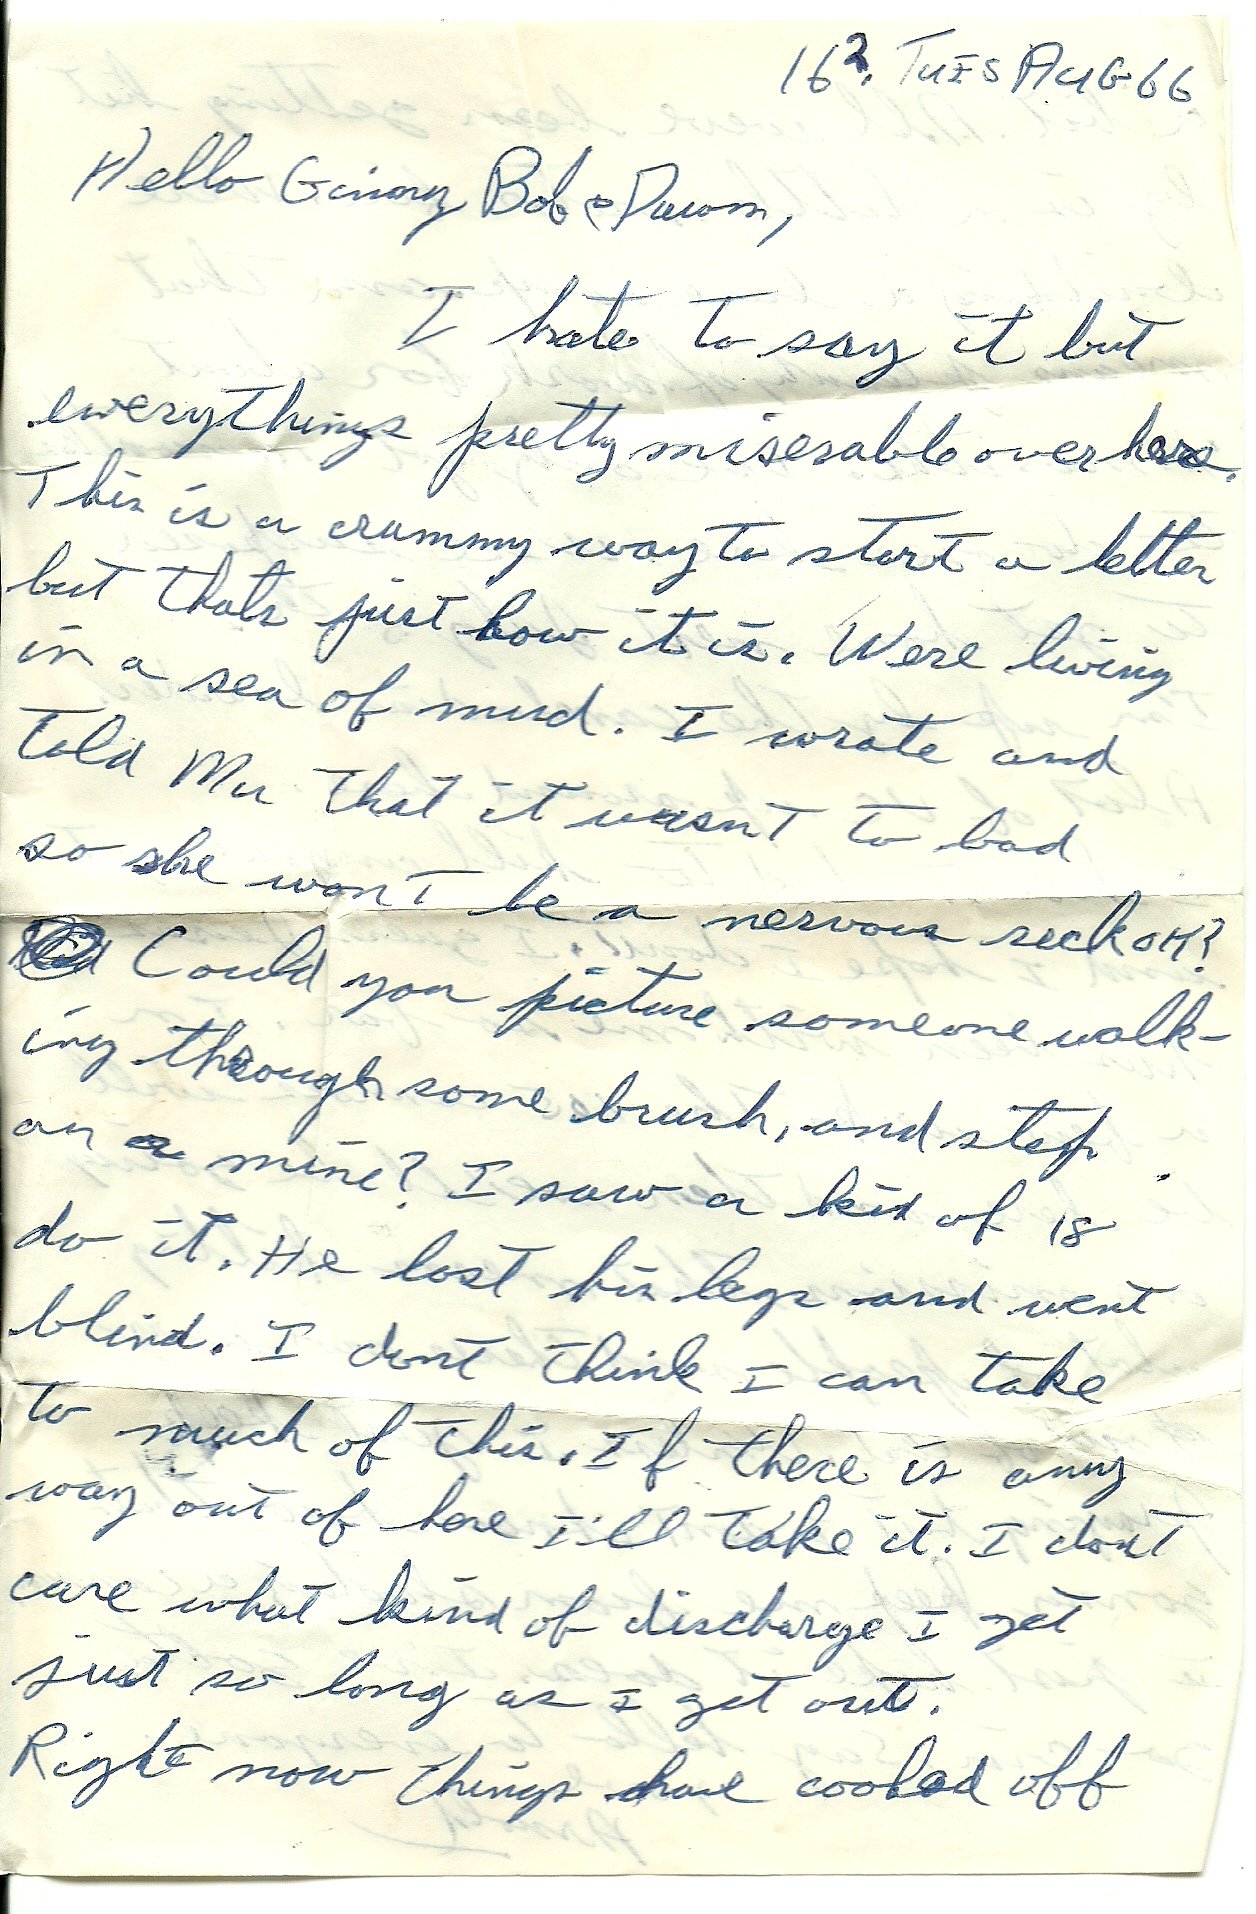 16?. TUES AUG 66
Hello Ginny Bob & Dawn,
I hate to say it but
everythings pretty miserable over here.
This is a crummy way to start a letter
but thats just how it is. Were living
in a sea of mud. I wrote and
told Ma that it wasnt to bad
so she won't be a nervous reck OK?
Could you picture someone walk-
ing through some brush, and step
on a mine? I saw a kid of 18
do it. He lost his legs and went
blind. I dont think I can take
to much of this. If there is any
way out of here I'll take it. I dont
care what kind of discharge I get
just so long as I get out.
Right now things have cooled off